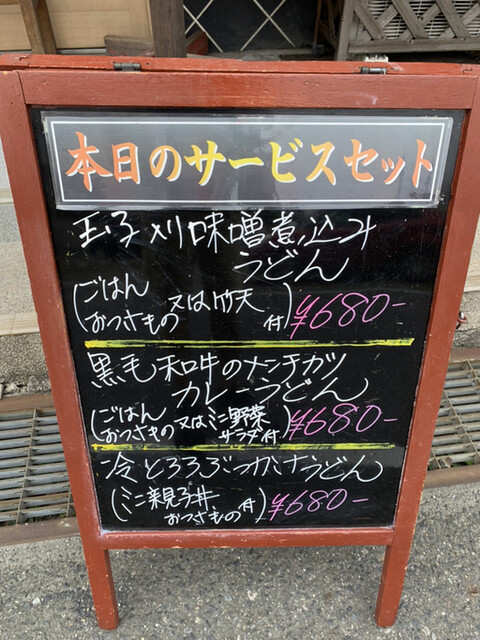 本日のサービスセット
玉子入り味噌煮込み
うどん
(ごはん
おつけもの 又は竹天 付) ¥680-
黒毛和牛のメンチカツ
カレーうどん
(ごはん
おつけもの 又はミニ野菜
サラダ付) ¥680-
冷とろろぶっかけうどん
(ミニ親子丼
おつけもの付) ¥680-